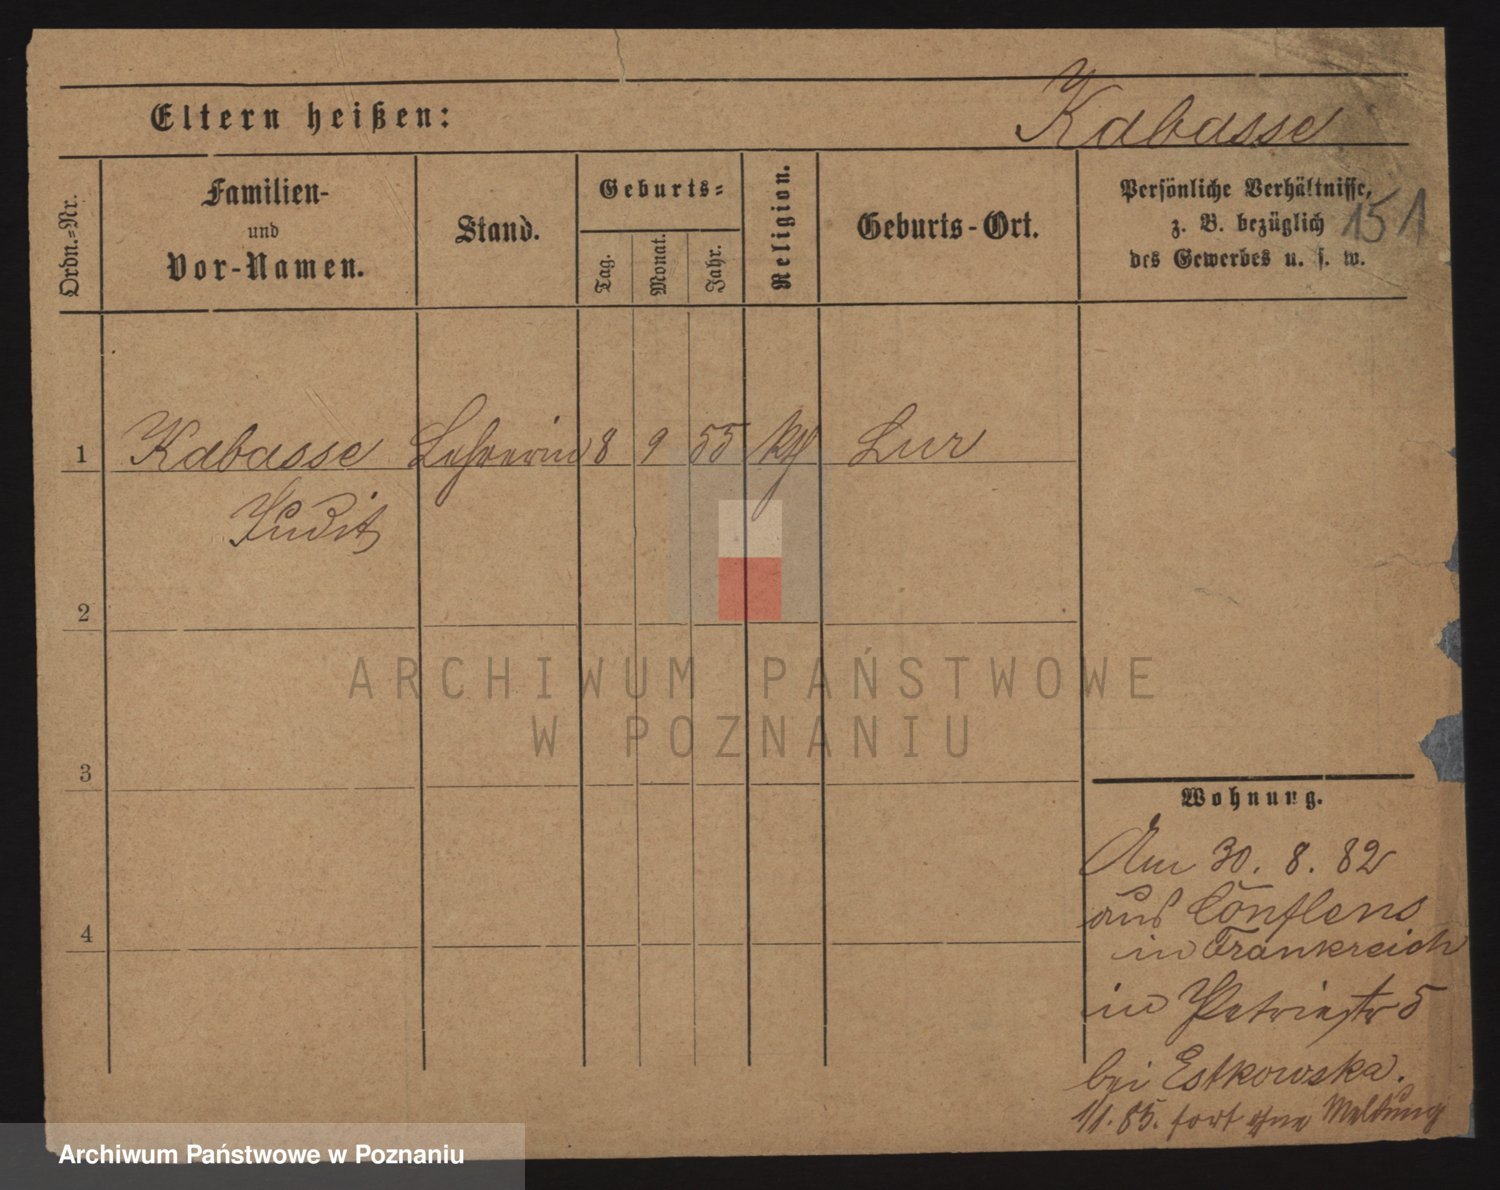 Eltern heißen:
Kabasse
Ordn.=Nr.
Familien-
und
Vor-Namen.
Stand.
Geburts=
Tag.
Monat.
Jahr.
Religion.
Geburts-Ort.
Persönliche Verhältnisse,
z. B. bezüglich
des Gewerbes u. s. w.
151
1 Kabasse Lehrerin 8 9 55 kth Lur
Judit
2
3
4
ARCHIWUM PAŃSTWOWE
W POZNANIU
Wohnung.
Am 30. 8. 82
aus Conflens
in Frankreich
in Petristr 5
bei Estkowska.
1/1. 85. fort ohne Meldung
Archiwum Państwowe w Poznaniu